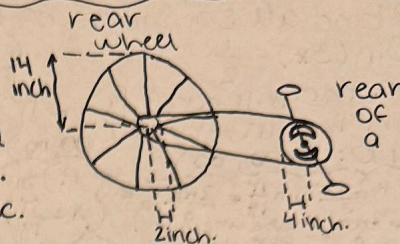 rear
wheel
14
inch
rear
of
a
c.
2inch.
4inch.